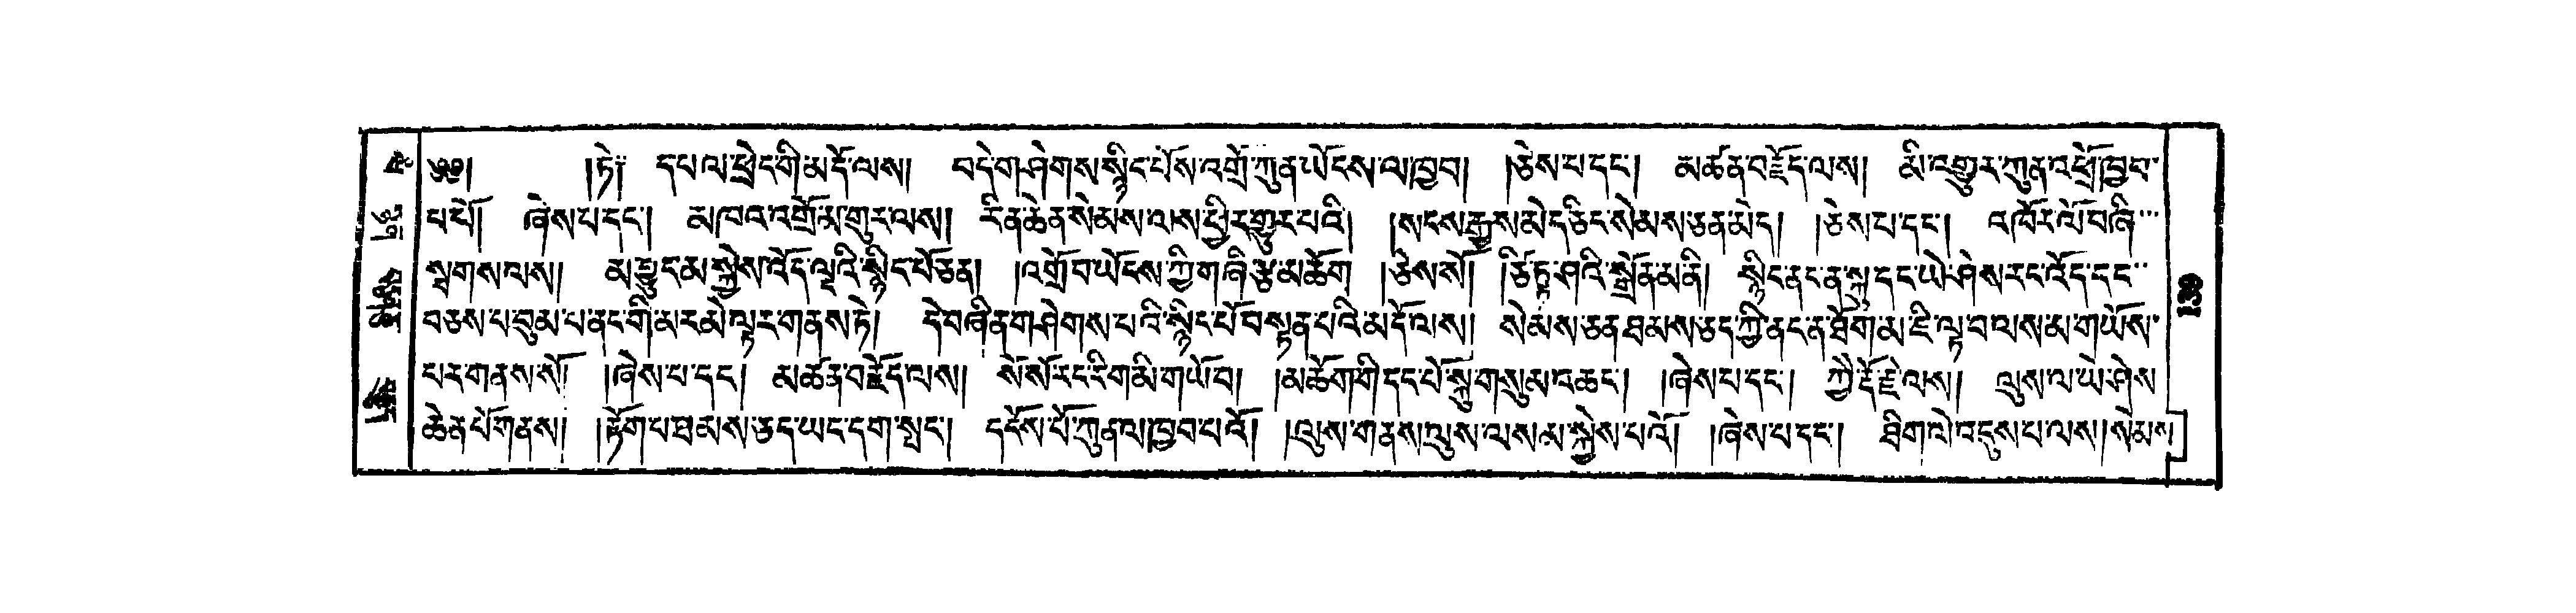 ༄༅། །ཏེ༔ དཔལ་ཕྲེང་གི་མདོ་ལས། བདེ་གཤེགས་སྙིང་པོས་འགྲོ་ཀུན་ཡོངས་ལ་ཁྱབ། །ཅེས་པ་དང་། མཚན་བརྗོད་ལས། མི་འགྱུར་ཀུན་འགྲོ་ཁྱབ་
པ་པོ། ཞེས་པ་དང་། མཁའ་འགྲོ་མ་གུར་ལས། རིན་ཆེན་སེམས་ལས་ཕྱིར་གྱུར་པའི། །སངས་རྒྱས་མེད་ཅིང་སེམས་ཅན་མེད། །ཅེས་པ་དང་། འཁོར་ལོ་བཞི་
སྔགས་ལས། མ་བྱུང་མ་སྐྱེས་འོད་ལྔའི་སྙིང་པོ་ཅན། །འགྲོ་བ་ཡོངས་ཀྱི་གཞི་རྩ་མ་ཆོག །ཅེས་སོ། །ཙིཏྟ་ཤའི་སྒྲོན་མ་ནི། སྙིང་ནང་ན་སྐུ་དང་ཡེ་ཤེས་རང་འོད་དང་
བཅས་པ་བུམ་པ་ནང་གི་མར་མེ་ལྟར་གནས་ཏེ། དེ་བཞིན་གཤེགས་པའི་སྙིང་པོ་བསྟན་པའི་མདོ་ལས། སེམས་ཅན་ཐམས་ཅད་ཀྱི་ནང་ན་ཐོག་མ་ཇི་ལྟ་བ་ལས་མ་གཡོས་
པར་གནས་སོ། །ཞེས་པ་དང་། མཚན་བརྗོད་ལས། སོ་སོ་རང་རིག་མི་གཡོ་བ། །མཆོག་གི་དང་པོ་སྐུ་གསུམ་འཆང་། །ཞེས་པ་དང་། ཀྱེ་རྡོ་རྗེ་ལས། ལུས་ལ་ཡེ་ཤེས
ཆེན་པོ་གནས། །རྟོག་པ་ཐམས་ཅད་ཡང་དག་སྤང་། དངོས་པོ་ཀུན་ལ་ཁྱབ་པ་པོ། །ལུས་གནས་ལུས་ལས་མ་སྐྱེས་པའོ། །ཞེས་པ་དང་། ཐིག་ལེ་འདུས་པ་ལས། སེམས